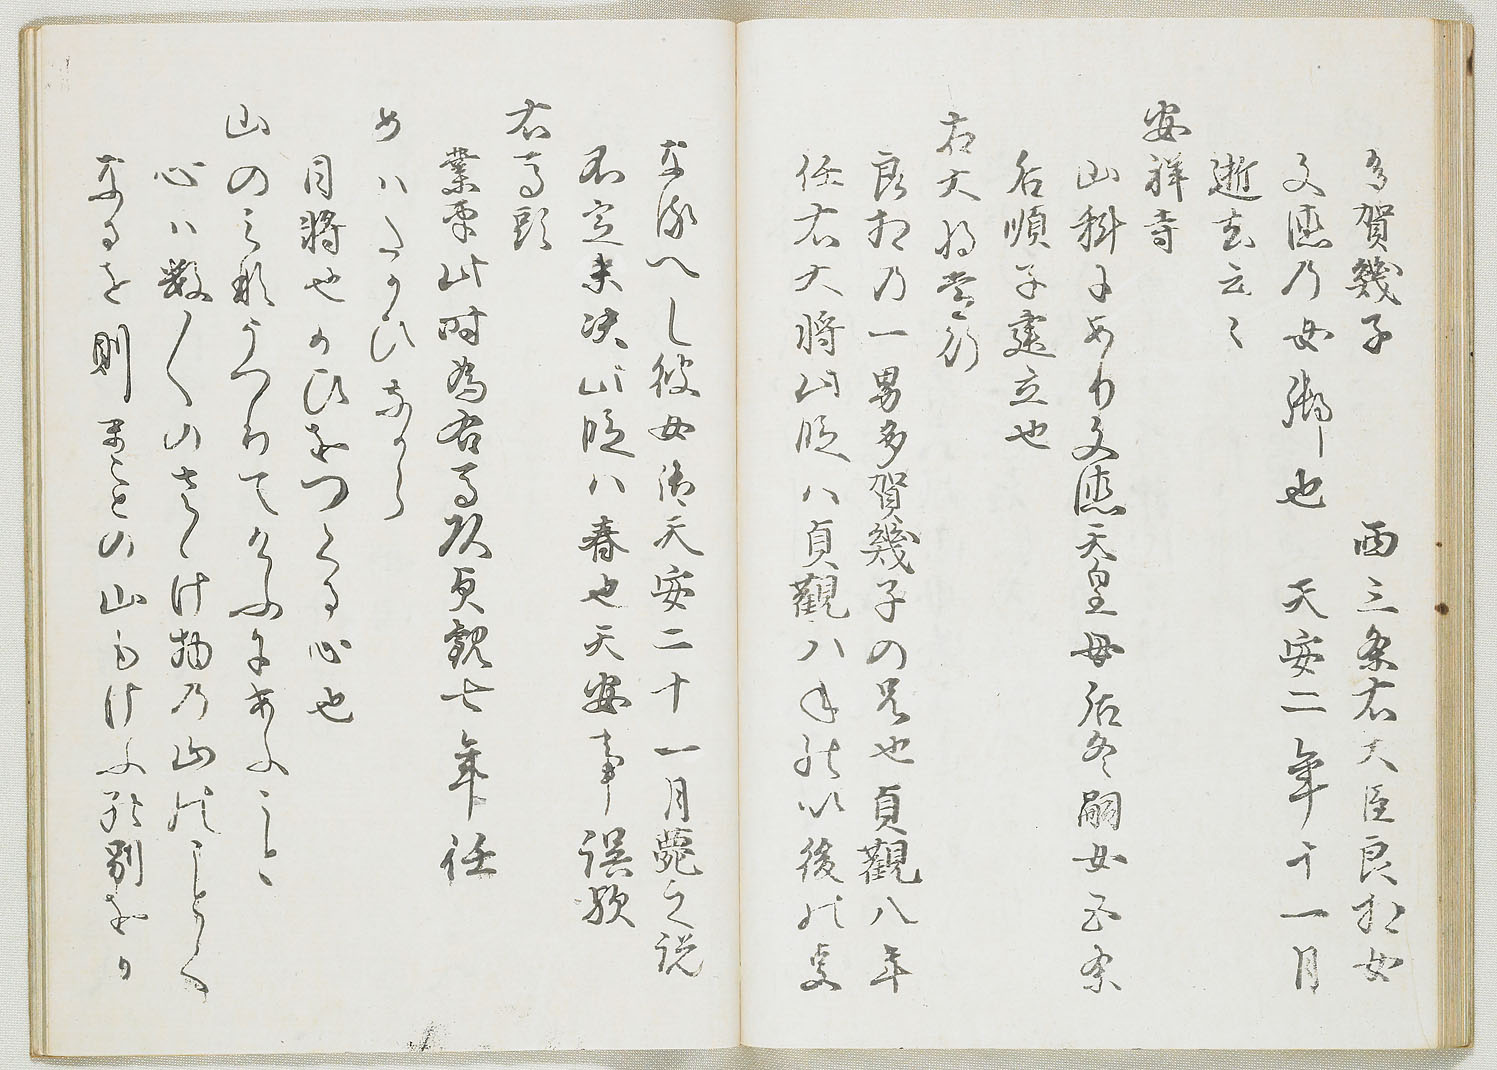 多賀幾子　西三条右大臣良相女
文徳乃女御也　天安二年十一月
逝去云々
安祥寺
山科にあり文徳天皇母后冬嗣女五条
后順子建立也
右大将常行
良相乃一男多賀幾子の兄也貞觀八年
任右大将此段ハ貞觀八年以後の事
なるへし彼女御天安二十一月薨之説
不定未決此段ハ春也天安事誤歟
右馬頭
業平此時為右馬頭貞観七年任
めハたかひなから
目将也かひをつくる心也
山のみな移りてけふにあふこと
心ハ数々のさゝけ物乃山のことく
なるを則まことの山もけふの別をか